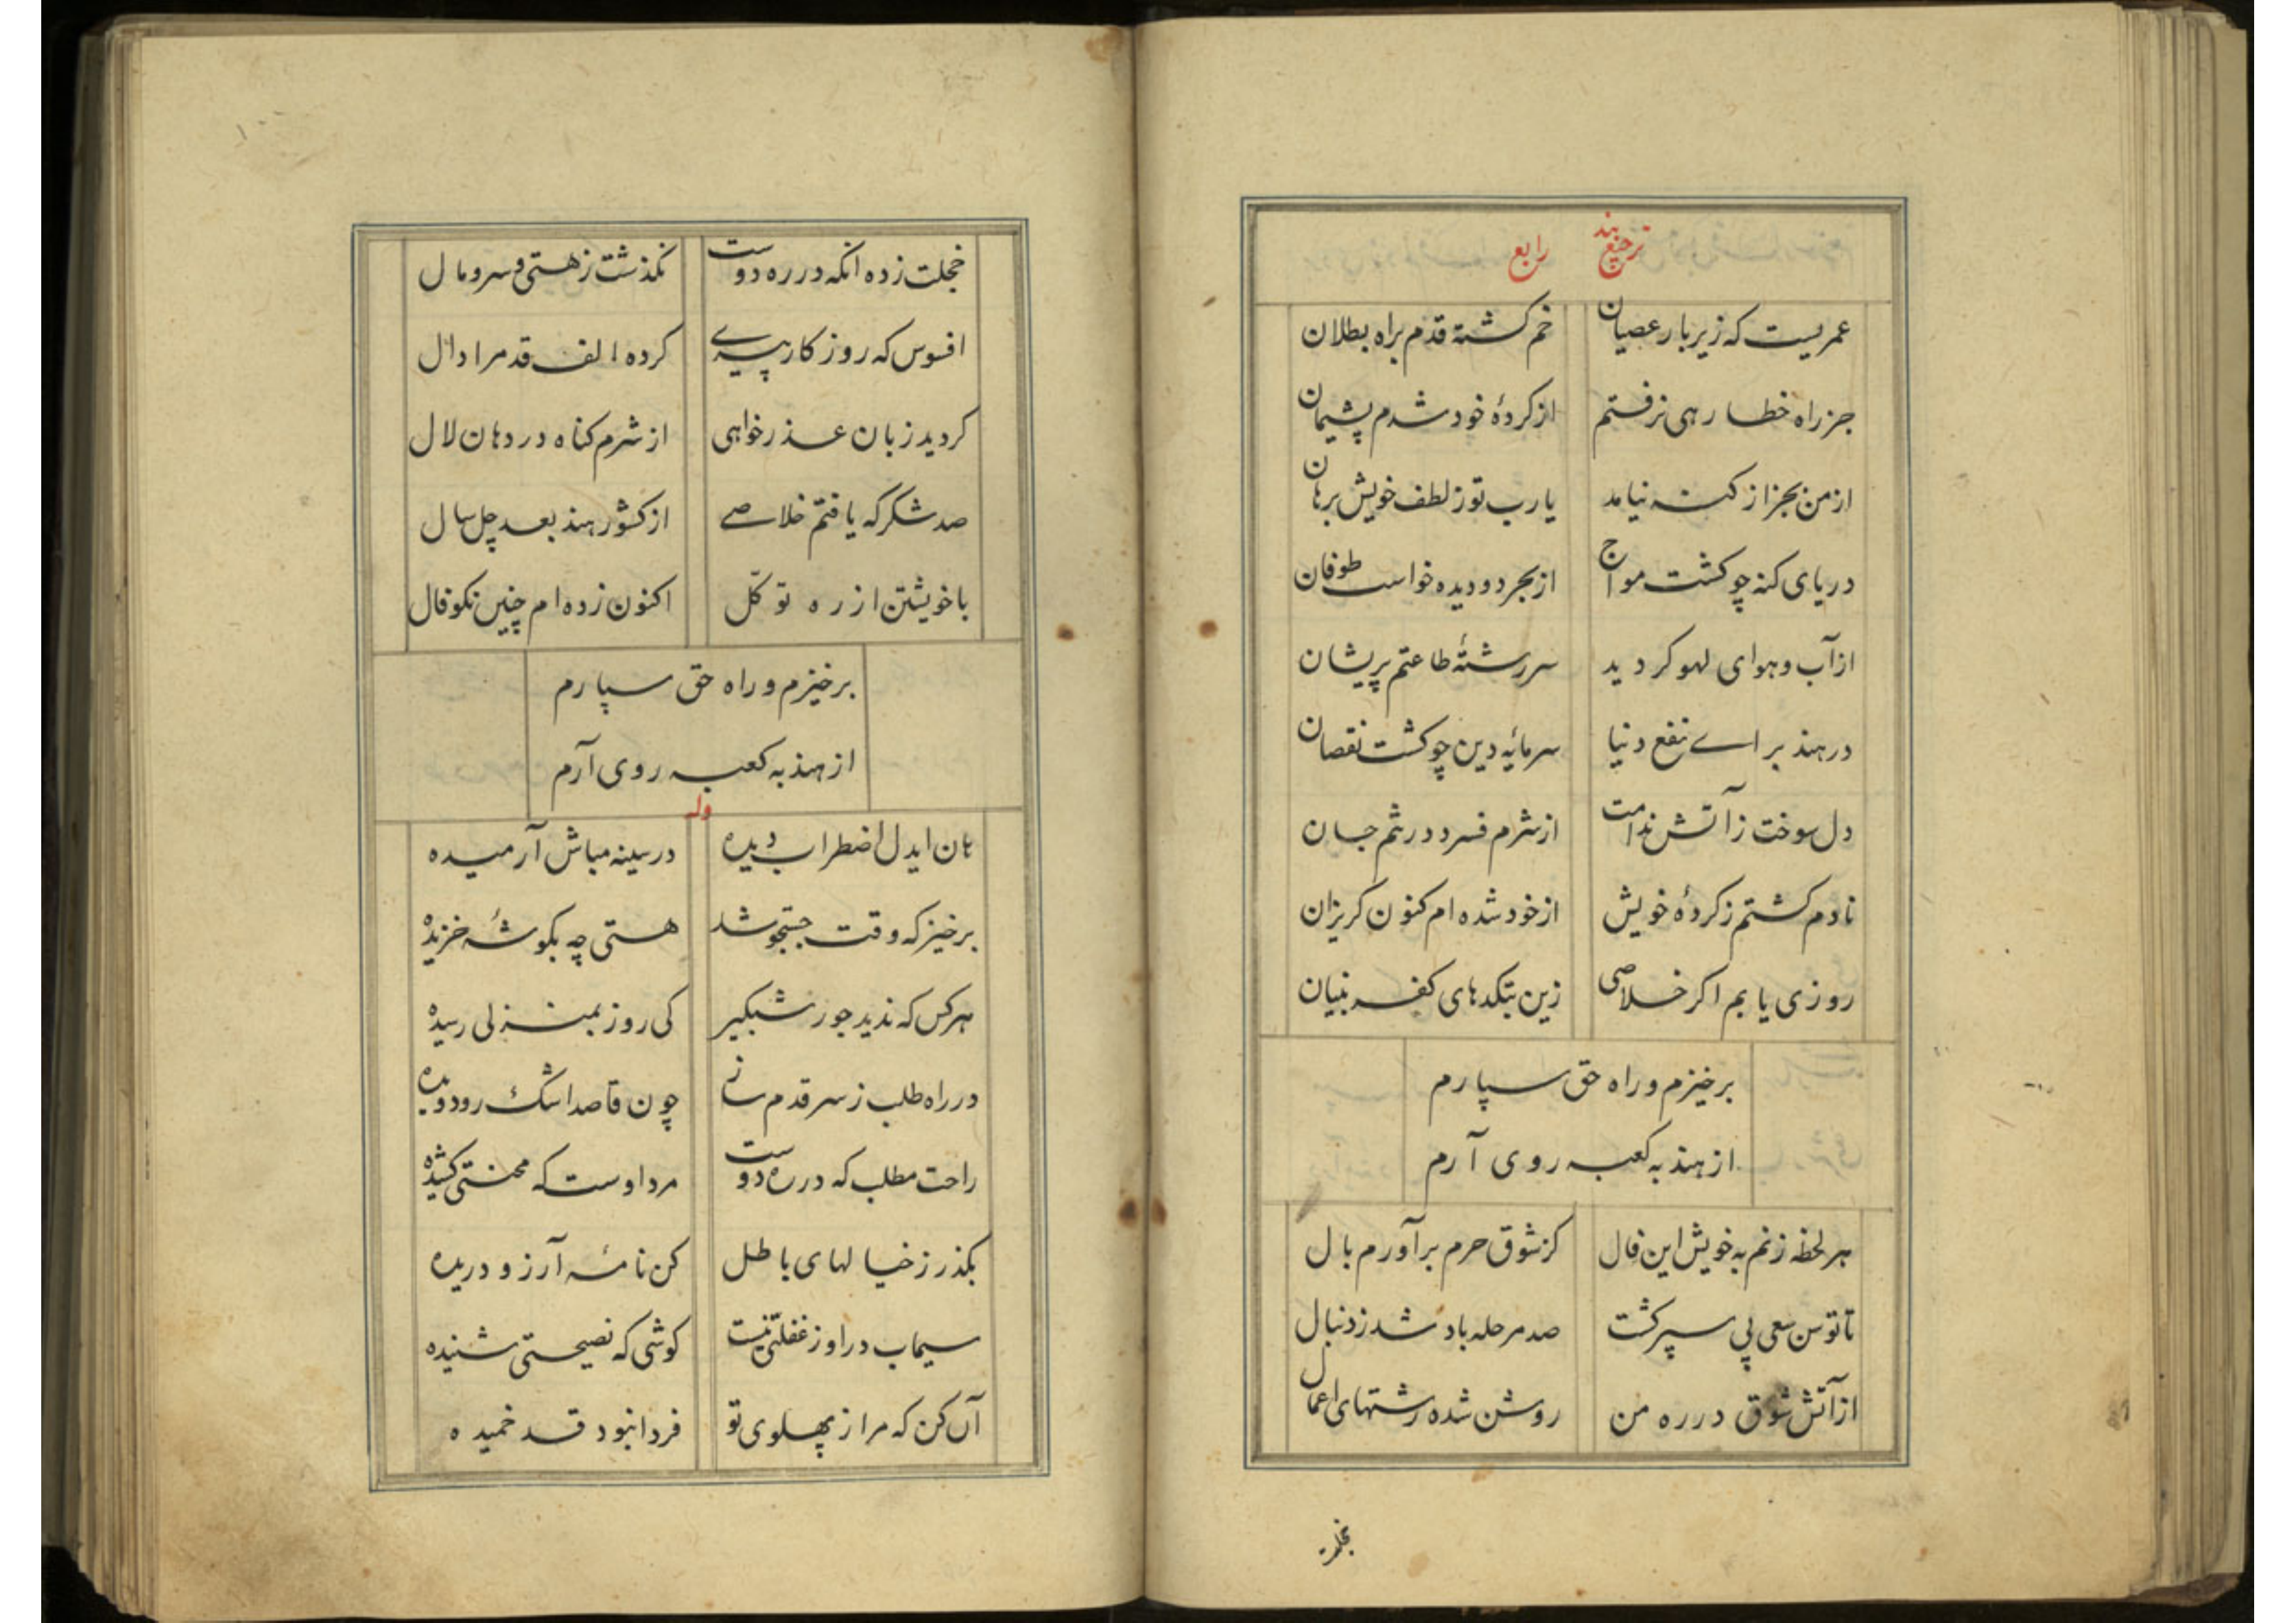 ترجیع بند رابع
عمریست که زیر بار عصیان خم کشته قدم براه بطلان
جز راه خطا رهی نرفتم از کردهٔ خود شدم پشیمان
از من بجز از کنه نیامد یا رب تو ز لطف خویش برهان
دریای کنه چو کشت مواج از بحر دو دیده خواست طوفان
از آب و هوای لهو کردید سررشتهٔ طاعتم پریشان
در هند برای نفع دنیا سرمایه دین چو کشت نقصان
دل سوخت ز آتش ندامت از شرم فسرد در تنم جان
نادم کشتم ز کردهٔ خویش از خود شده ام کنون کریزان
روزی یابم اکر خلاصی زین بتکدهای کفر بنیان
برخیزم و راه حق سپارم
از هند به کعبه روی آرم
هر لحظه زنم به خویش این فال کز شوق حرم برآورم بال
تا توسن سعی پی سپر کشت صد مرحله باد شد ز دنبال
از آتش شوق در ره من روشن شده رشتهای اعمال
خجلت
خجلت زده انکه در ره دوست نکذشت ز هستی و سر و مال
افسوس که روزکار پیری کرده الف قد مرا دال
کردید زبان عذرخواهی از شرم کناه در دهان لال
صد شکر که یافتم خلاصی از کشور هند بعد چل سال
با خویشتن از ره توکّل اکنون زده ام چنین نکو فال
برخیزم و راه حق سپارم
از هند به کعبه روی آرم
وله
هان ایدل اضطراب دیده در سینه مباش آرمیده
برخیز که وقت جستجو شد هستی چه بکوشهٔ خزیده
هر کس که ندید جور شبکیر کی روز بمنزلی رسیده
در راه طلب ز سر قدم ساز چون قاصد اشک رو دویده
راحت مطلب که در ره دوست مرد اوست که محنتی کشیده
بکذر ز خیالهای باطل کن نامهٔ آرزو دریده
سیماب در او ز غفلتی نیست کوشی که نصیحتی شنیده
آن کن که مرا ز پهلوی تو فردا نبود قد خمیده